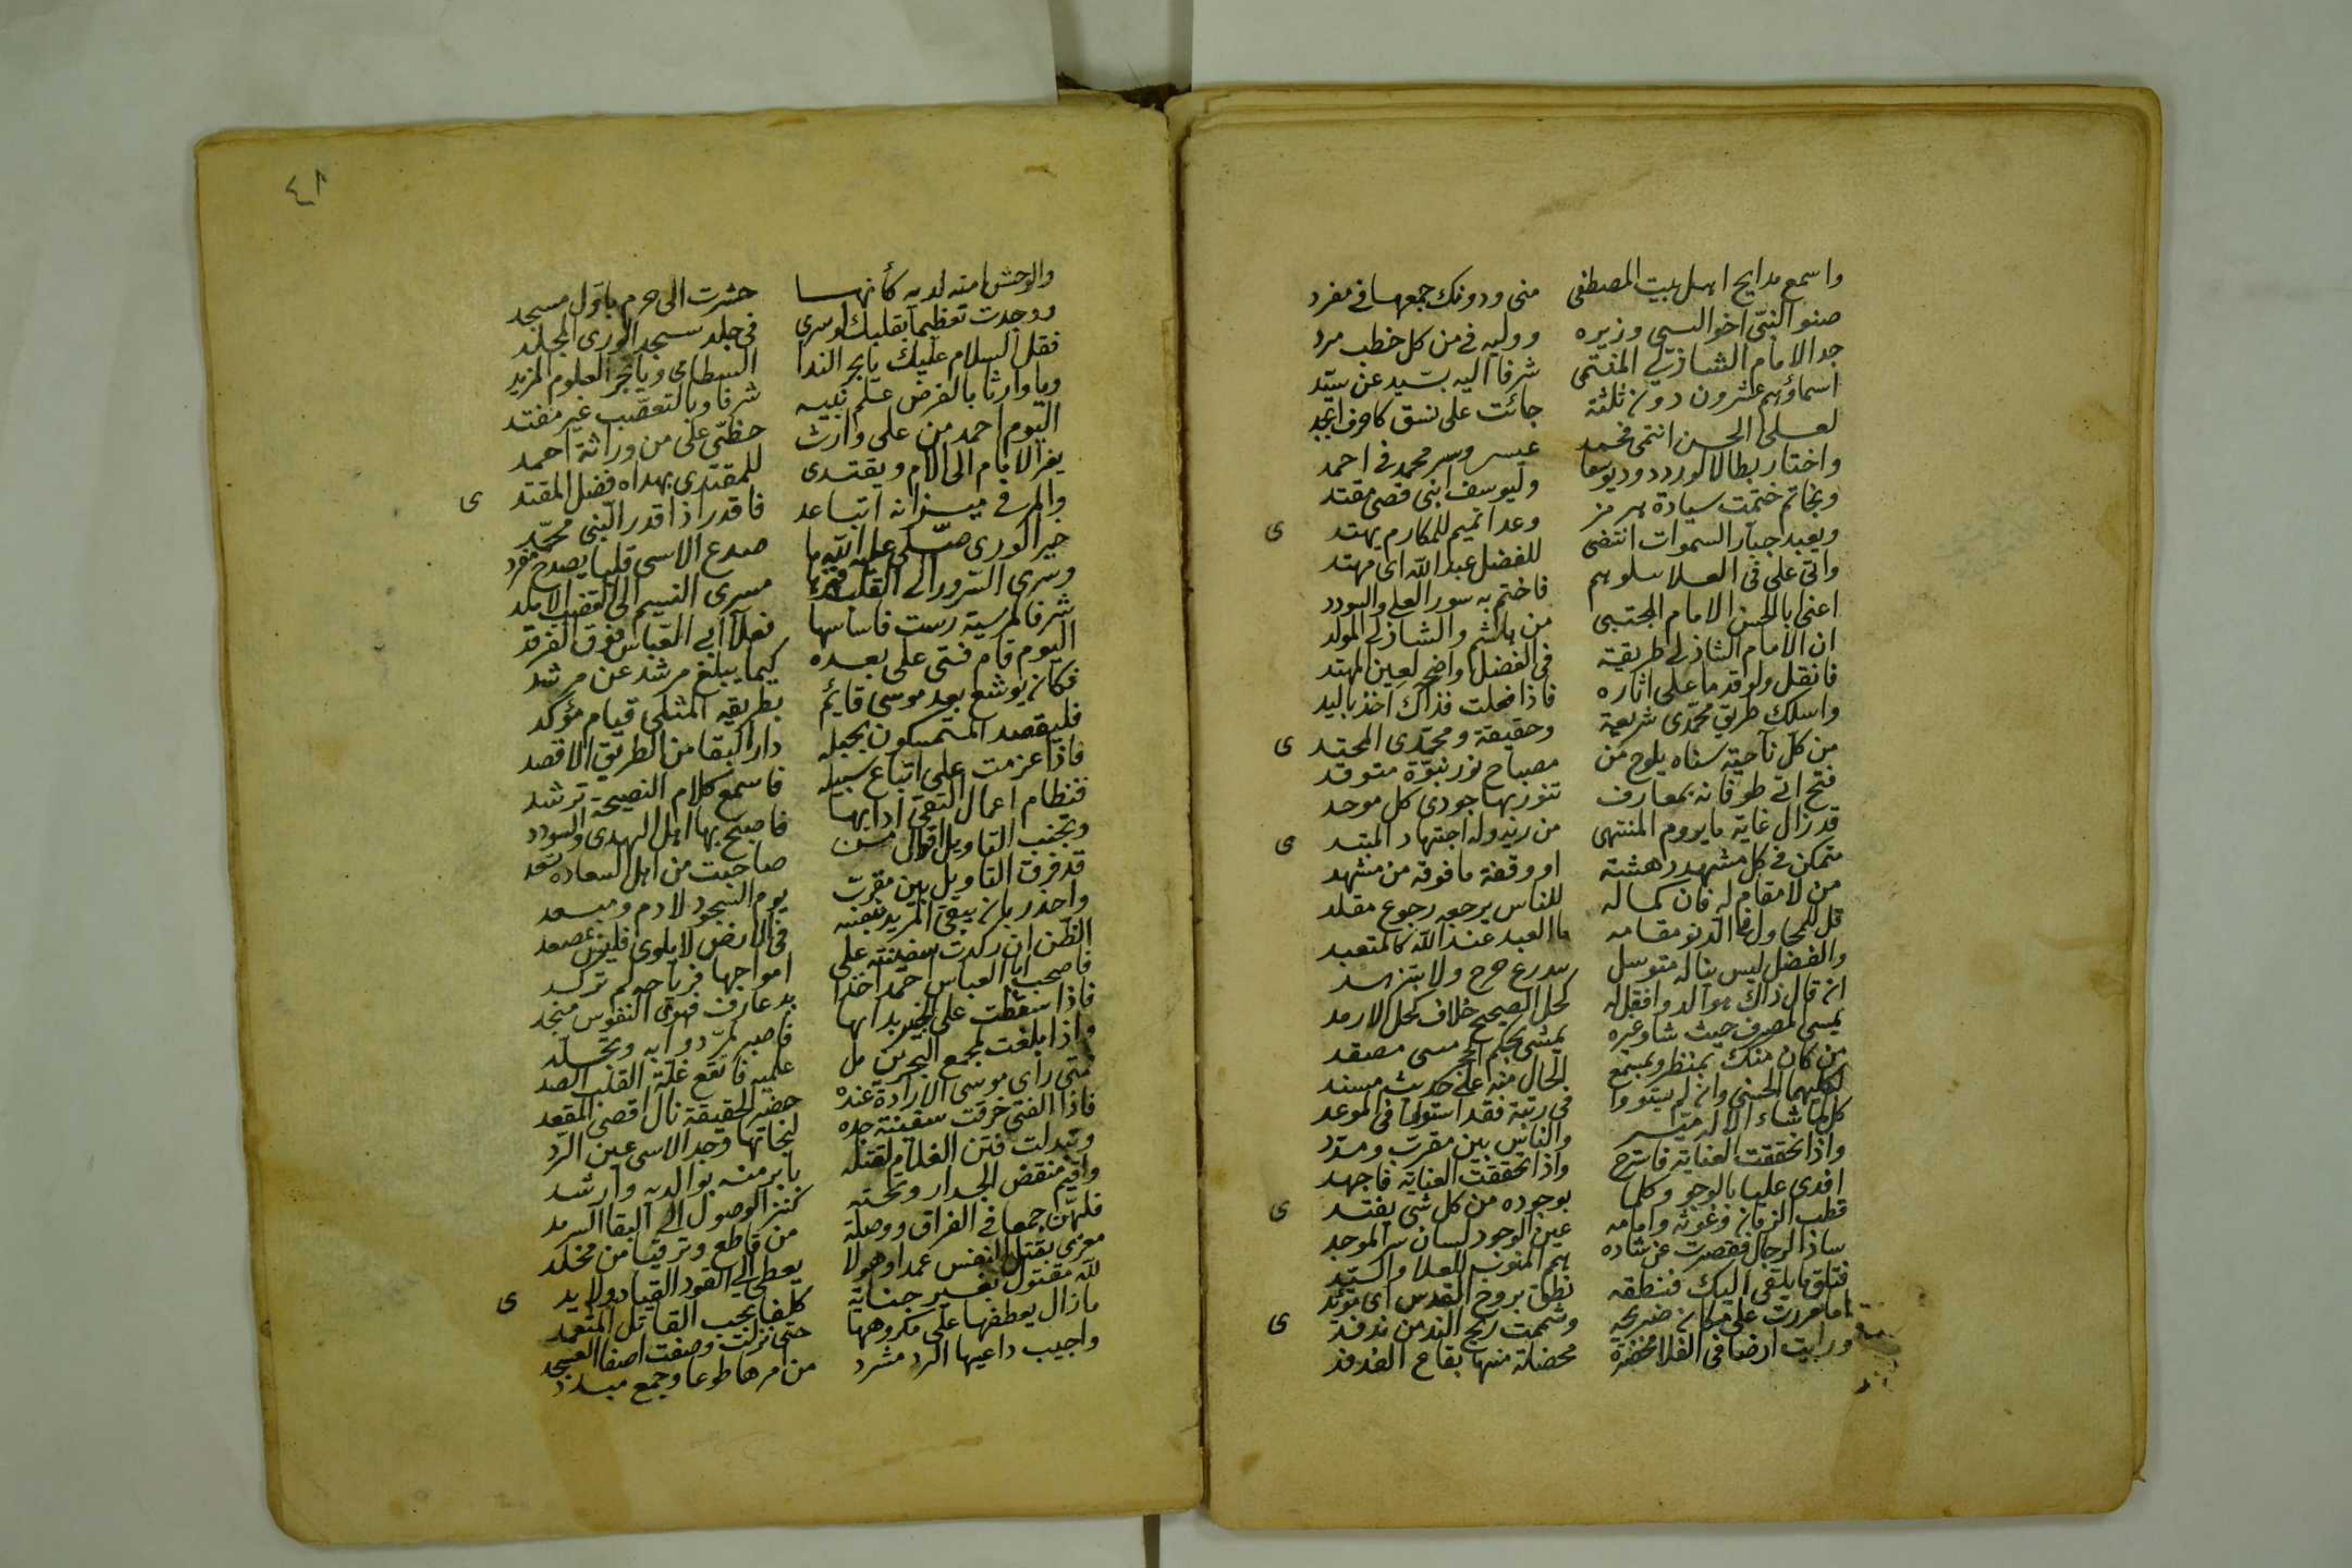 واسمع مدايح اهل بيت المصطفى منى ودونك جمعها فى مفرد
صنو النبى اخو النبى وزيره ووليه فى من كل خطب مرد
جد الامام الشاذلى المنتمى شرفا اليه بسيد عن سيد
اسماؤهم عشرون دون ثلثة جائت على نسق كاحرف ابجد
لعلى الحسن انتمى فمحمد عيسى وسر محمد فى احمد
واختار بطالا لورد ويوسعا وليوسف ابنى قصى مقتد
وبخاتم ختمت سيادة هرمز وغدا تميم للمكارم يهتد
وبعبد جبار السموات انتضى للفضل عبد الله اى مهند
واتى على فى العلا سلوهم فاختم به سور العلى والسودد
اعنى ابا الحسن الامام المجتبى من هاشم والشاذلى المولد
ان الامام الشاذلى طريقته فى الفضل واضح لعين المهتد
فانقل ولو قدما على اثاره فاذا فعلت فذاك اخذ باليد
واسلك طريق محمدى شريعة وحقيقة ومحمدى المحتد
من كل ناحية سناه يلوح من مصباح نور نبوة متوقد
فتح اتى طوفانه بمعارف تنور بها جودى كل موحد
قد نال غاية ما يروم المنتهى من ربه وله اجتهاد المبتد
متمكن فى كل مشهد دهشة او وقفة ما فوقه من مشهد
من لا مقام له فان كماله للناس يرجعه رجوع مقلد
قل للمحاول فى الدنو مقامه ما العبد عند الله كالمتعبد
والفضل ليس يناله متوسل بتورع حرج ولا بتزهد
ان قال ذاك هو الدوا فقل له كحل الصحيح خلاف كحل الارمد
يمسى المصرف حيث شاء وغيره يمشى بحكم الحجر مسى مصفد
من كان منك بمنظر وبمسمع الحال منه على حديث مسند
لكليهما الحسنى وان لم يستووا فى رتبة فقد استووا فى الموعد
كل لما شاء الاله ميسر والناس بين مقرب ومشرد
واذا تحققت العناية فاسترح واذا تحققت العناية فاجهد
افدى عليا بالوجود وكلنا بوجوده من كل شى يفتد
قطب الزمان وغوثه وامامه عين الوجود لسان سر الموجد
ساد الرجال فقصرت عن شاده همم المئوب للعلا والسيد
فتلق ما يلقى اليك فنطقه نطق بروح القدس اى مؤيد
اما مررت على مكان ضريحه وشممت ريح الند من ندفد
ورايت ارضا فى الفلا مخضرة مخضلة منها بقاع الفدفد
٤١
والوحش امنه لديه كأنها حشرت الى حرم باول مسجد
ووجدت تعظيما بقلبك لو سرى فى جلمد سجد الورى للجلمد
فقل السلام عليك يا بحر الندا الطامى ويا بحر العلوم المزبد
ويا وارثا بالفرض علم نبيه شرفا وبالتعصيب غير مفند
اليوم احمد من على وارث حظى على من وراثة احمد
يفز الامام الى الامام ويقتدى للمقتدى بهداه فضل المقتد
والمرء فى ميزانه اتباعه فاقدر اذا قدر النبى محمد
خير الورى صلى عليه الله ما صدع الاسى قلبا بصدح مغرد
وسرى السرور الى القلب مسرى النسيم الى القضيب الاملد
شرفا لمرسية رست فاساسها فعلا ابى العباس فوق الفرقد
اليوم قام فتى على بعده كيما يبلغ مرشد عن مرشد
فكان يوشع بعد موسى قايم بطريقه المثلى قيام مؤكد
فليقصد المستمسكون بحبله دار البقا من الطريق الاقصد
فاذا عزمت على اتباع سبيله فاسمع كلام النصيحة ترشد
فنظام اعمال التقى ادابها فاصحب بها اهل الهدى والسودد
وتجنب التاويل اقوال من صاحبت من اهل السعادة تسعد
قد فرق التاويل بين مقرب يوم السجود لادم ومبعد
واحذر بان يبقى المريد بعينه فى الارض لا يلوى فليس عصعد
الظن ان ركدت سفينته على امواجها فرياحه لم تركد
فاصحب ابا العباس احمد اخذا يد عارف فهوى النفوس منجد
فاذا سقطت على الخبير بدائها فاصبر لمر دوائه وتجلد
واذا بلغت لمجمع البحرين من علميه فانقع غلة القلب الصد
متى راى موسى الارادة عنده خضر الحقيقة نال اقصى المقصد
فاذا الفتى خرقت سفينة جده لنجاتها وجد الاسى عين الرد
وتبدلت فتن الغلام لقتله بابر منه بوالديه وارشد
واقيم منقض الجدار وتحته كنز الوصول الى البقا السرمد
فلهن جمعا فى الفراق ووصلة من قاطع وترقيا من مخلد
مغرى بقتل النفس عمدا وهو لا يعطى الى القود القياد ولا يد
لله مقتول بغير جناية كلفا بحب القاتل المتعمد
ما زال يعطفها على مكروهها حتى تزلت وصفت اصفا العسجد
واجيب داعيها الرد مشرد من مرها طوعا وجمع مبدد